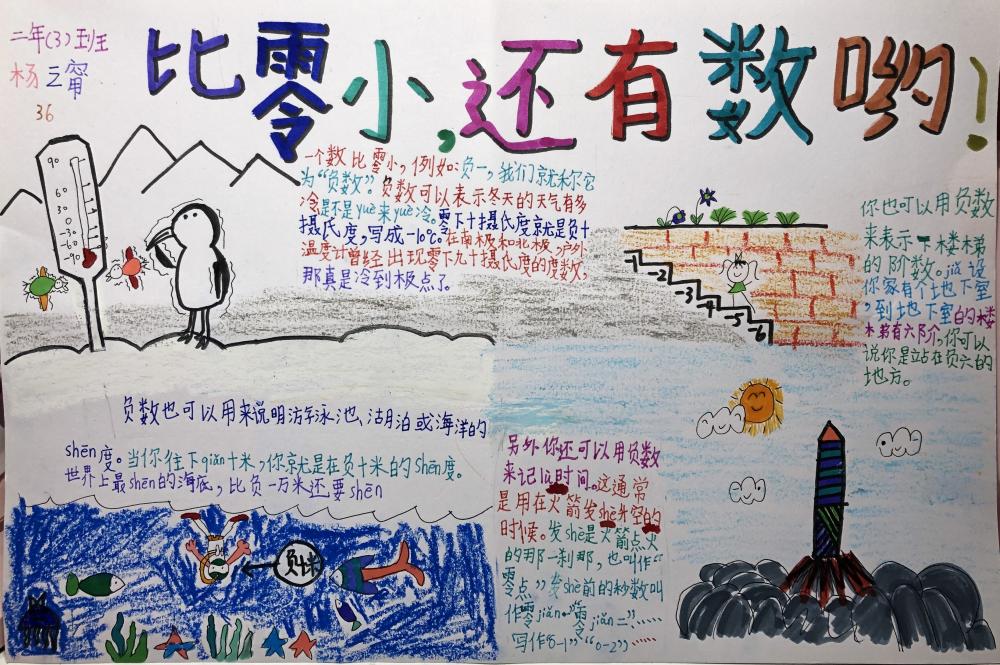 二年(3)班
杨云甯
36
比零小,还有数哟!
90
60
30
0
-30
-60
-90
一个数比零小,例如:负一,我们就称它
为“负数”。负数可以表示冬天的天气有多
冷是不是yuè来yuè冷。零下十摄氏度就是负十
摄氏度,写成-10℃。在南极和北极,户外
温度计曾经出现零下九十摄氏度的度数,
那真是冷到极点了。
-1
-2
-3
-4
-5
-6
你也可以用负数
来表示下楼梯
的阶数。jiǎ设
你家有个地下室
,到地下室的楼
梯有六阶,你可以
说你是站在负六的
地方。
负数也可以用来说明游泳池、湖泊或海洋的
shēn度。当你往下qiǎn十米,你就是在负十米的shēn度。
世界上最shēn的海底,比负一万米还要shēn
负十米
另外你还可以用负数
来记lù时间。这通常
是用在火箭发shè升空的
时候。发shè是火箭点火
的那一刹那,也叫作“
零点”发shè前的秒数叫
作零jiǎn一“零jiǎn二”……
写作“0-1”“0-2”……